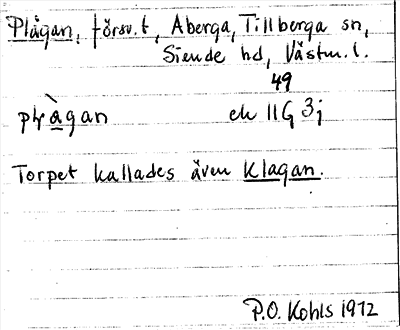 Plågan, försv. t, Aberga, Tillberga sn,
Siende hd, Västm. l.
49
plàgan ek 11G 3j
Torpet kallades även Klagan.
P.O. Kohls 1972